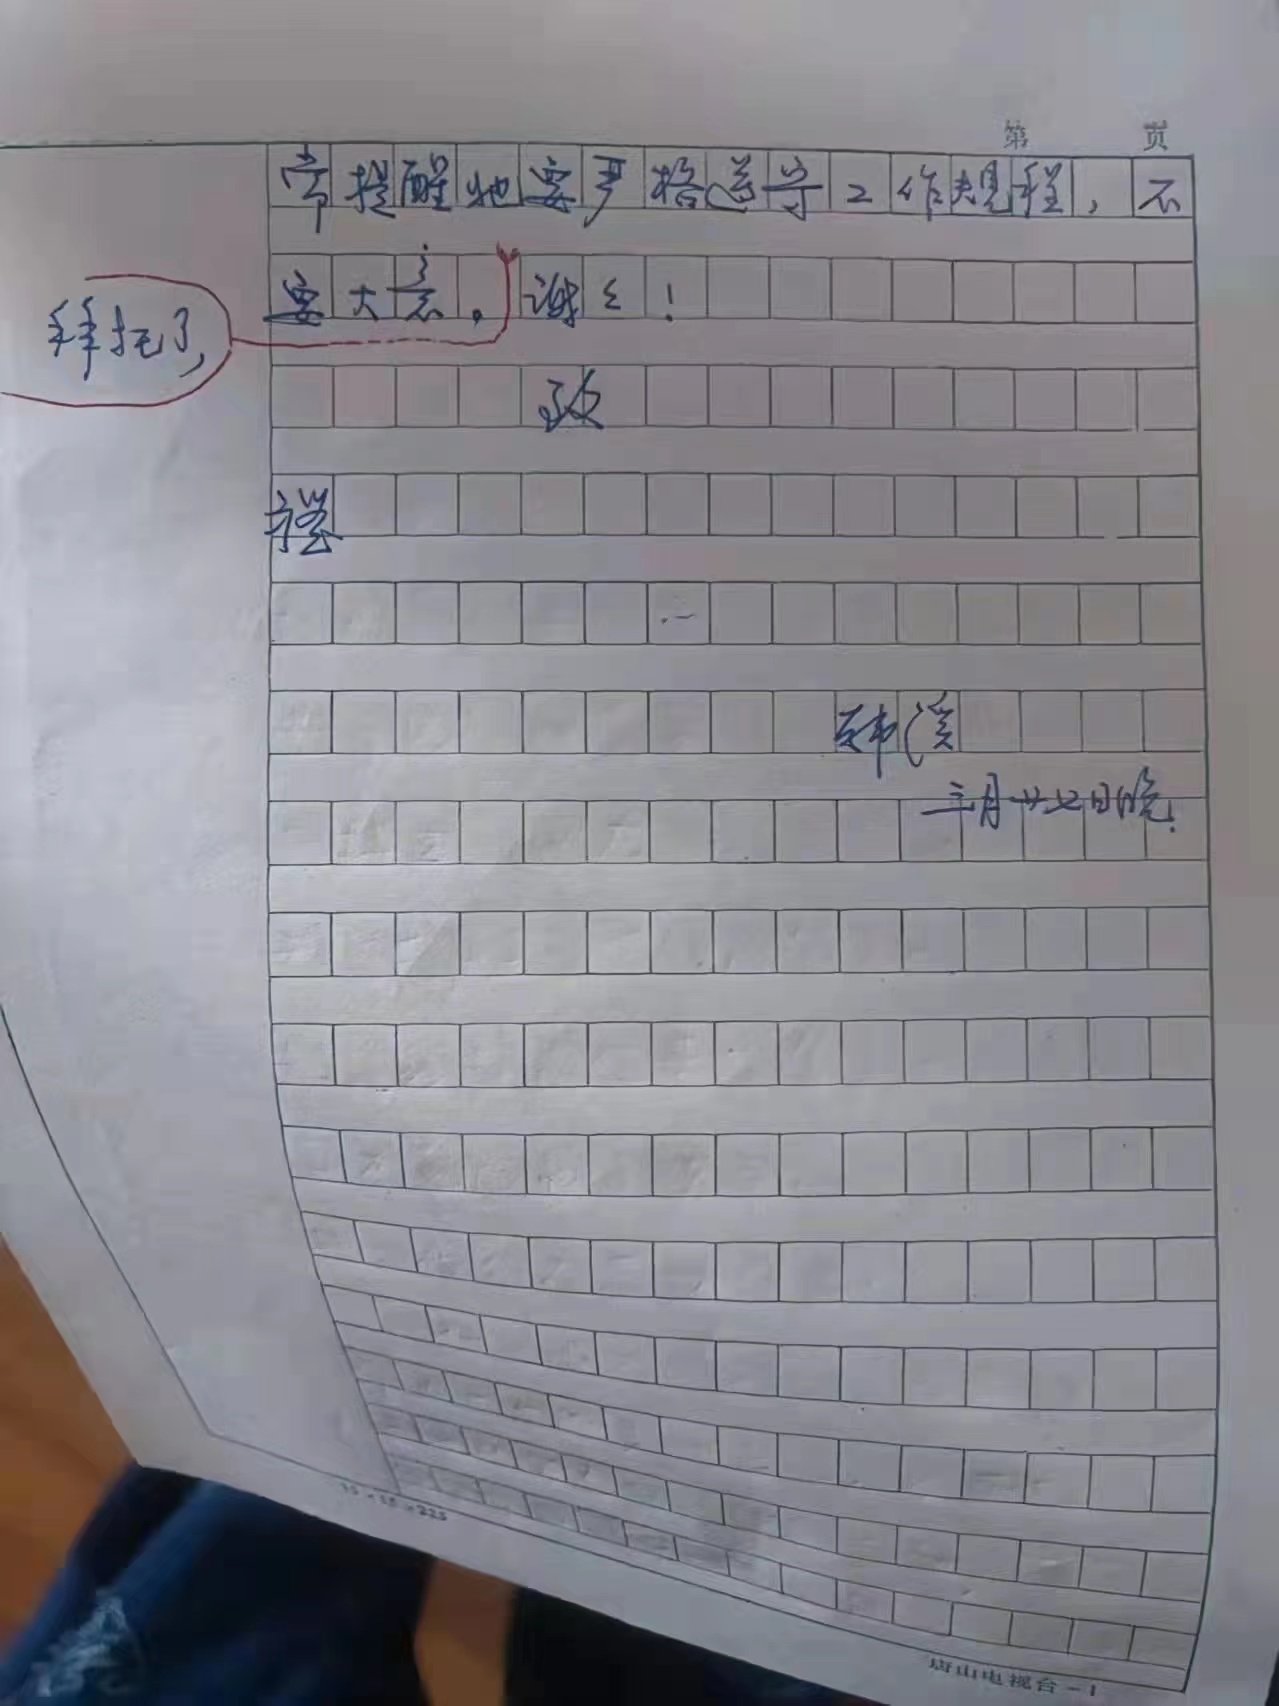 第 页
常提醒她要严格遵守工作规程,不
要大意。谢々!
拜托了,
致
礼
韩溪
三月廿七日晚.
15×15=225
唐山电视台-1